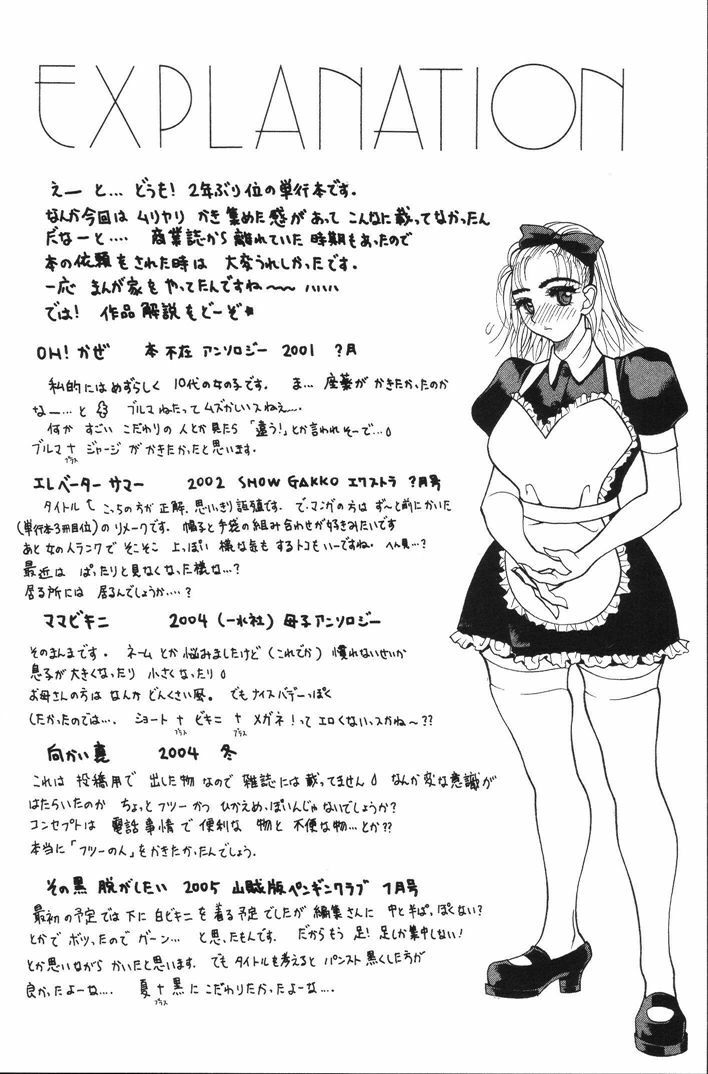 EXPLANATION
えーと… どうも! 2年ぶり位の単行本です.
なんか今回は ムリヤリ かき集めた感があって こんなに載ってなかったん
だなーと…. 商業誌から離れていた時期もあったので
本の依頼をされた時は 大変うれしかったです.
一応 まんが家をやってたんですね〜〜 ハハハ
では! 作品解説をどーぞ
OH! かぜ 本不在 アンソロジー 2001 ?月
私的にはめずらしく 10代の女の子です. ま…
なー…と ブルマねたって ムズかしいスねえ….
何か すごい こだわりの人とか見たら「違う!」とか言われそーで…
ブルマ+ジャージ がかきたかったと思います.
プラス
エレベーター サマー 2002 SNOW GAKKO エクストラ ?月号
タイトル こっちの方が正解.思いっきり誤植です. で.マンガの方は ず〜と前にかいた
(単行本3冊目位)のリメークです. 帽子と手袋の組み合わせが好きみたいです
あと 女の人ランクで そこそこ 上っぽい 様な気も するトコもいーですね.
最近は ぱったりと見なくなった様な…?
居る所には 居るんでしょうか….?
ママビキニ 2004 (一水社) 母子アンソロジー
そのまんまです. ネーム とか悩みましたけど(これでか) 慣れないせいか
息子が大きくなったり 小さくなったり
お母さんの方は なんか どんくさい風。 でもナイスバデーっぽく
したかったのでは…. ショート+ビキニ+メガネ!って エロくないっスかね〜??
プラス プラス
向かい裏 2004 冬
これは 投稿用で 出した物 なので 雑誌には 載ってません なんか変な意識が
はたらいたのか ちょっと フツー かつ ひかえめっぽいんじゃないでしょうか?
コンセプトは 電話事情で 便利な 物と 不便な物…とか??
本当に「フツーのん」をかきたかったんでしょう.
その黒 脱がしたい 2005 山賊版ペンギンクラブ 7月号
最初の予定では 下に 白ビキニを 着る予定でしたが 編集さんに
とかで ボツったので グーン… と思ったもんです. だからもう 足! 足しか集中しない!
とか思いながら かいたと思います. でもタイトルも考えると パンスト 黒くした方が
良かったよーな…. 夏+黒にこだわりたかったよーな….
プラス